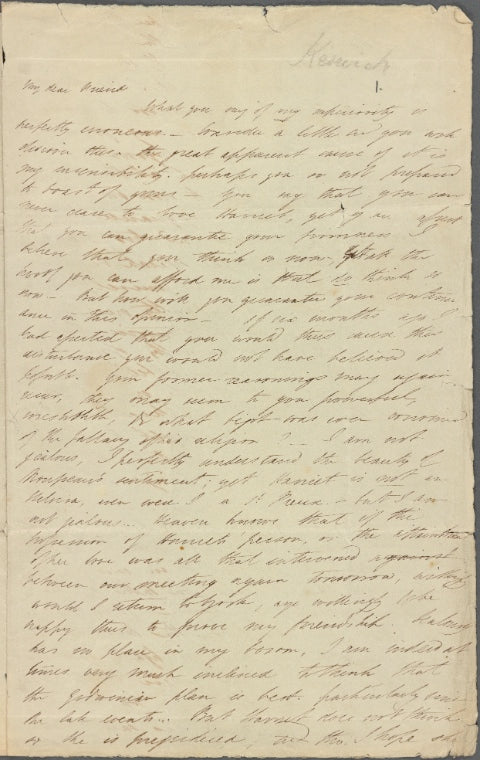 Keswick
1.
My dear Friend
What you say of my superiority is
perfectly erroneous – Consider a little and you will
discern this. the great apparent cause of it is
my insensibility. perhaps you are not prepared
to boast of yours – You say that you can
never cease to love Harriet, yet if an
tho' you can guarantee your firmness
believe that you think so now, but all the
proof you can afford me is that you think so
now – But how will you guarantee your continu-
ance in this Opinion – If six months ago I
had asserted that you would thus cause this
disturbance you would not have believed it
possible. Your former reasonings may again
recur, they may seem to you powerfully
irresistible, & what bigot was ever convinced
of the fallacy of his religion? – I am not
jealous, I perfectly understand the beauty of
Rousseau's sentiment, yet Harriet is not an
Heloisa, even were I a St Preux – but I am
not jealous.. Heaven knows that if the
possession of Harriets person, or the attainment
of her love was all that intervened against
between our meeting again tomorrow, willingly
would I return to York, aye willingly to be
happy thus to prove my friendship. Jealousy
has no place in my bosom, I am indeed at
times very much inclined to think that
the Godwinian plan is best. particularly since
the late events... But Harriet does not think
so she is prejudiced, and tho. I hope she